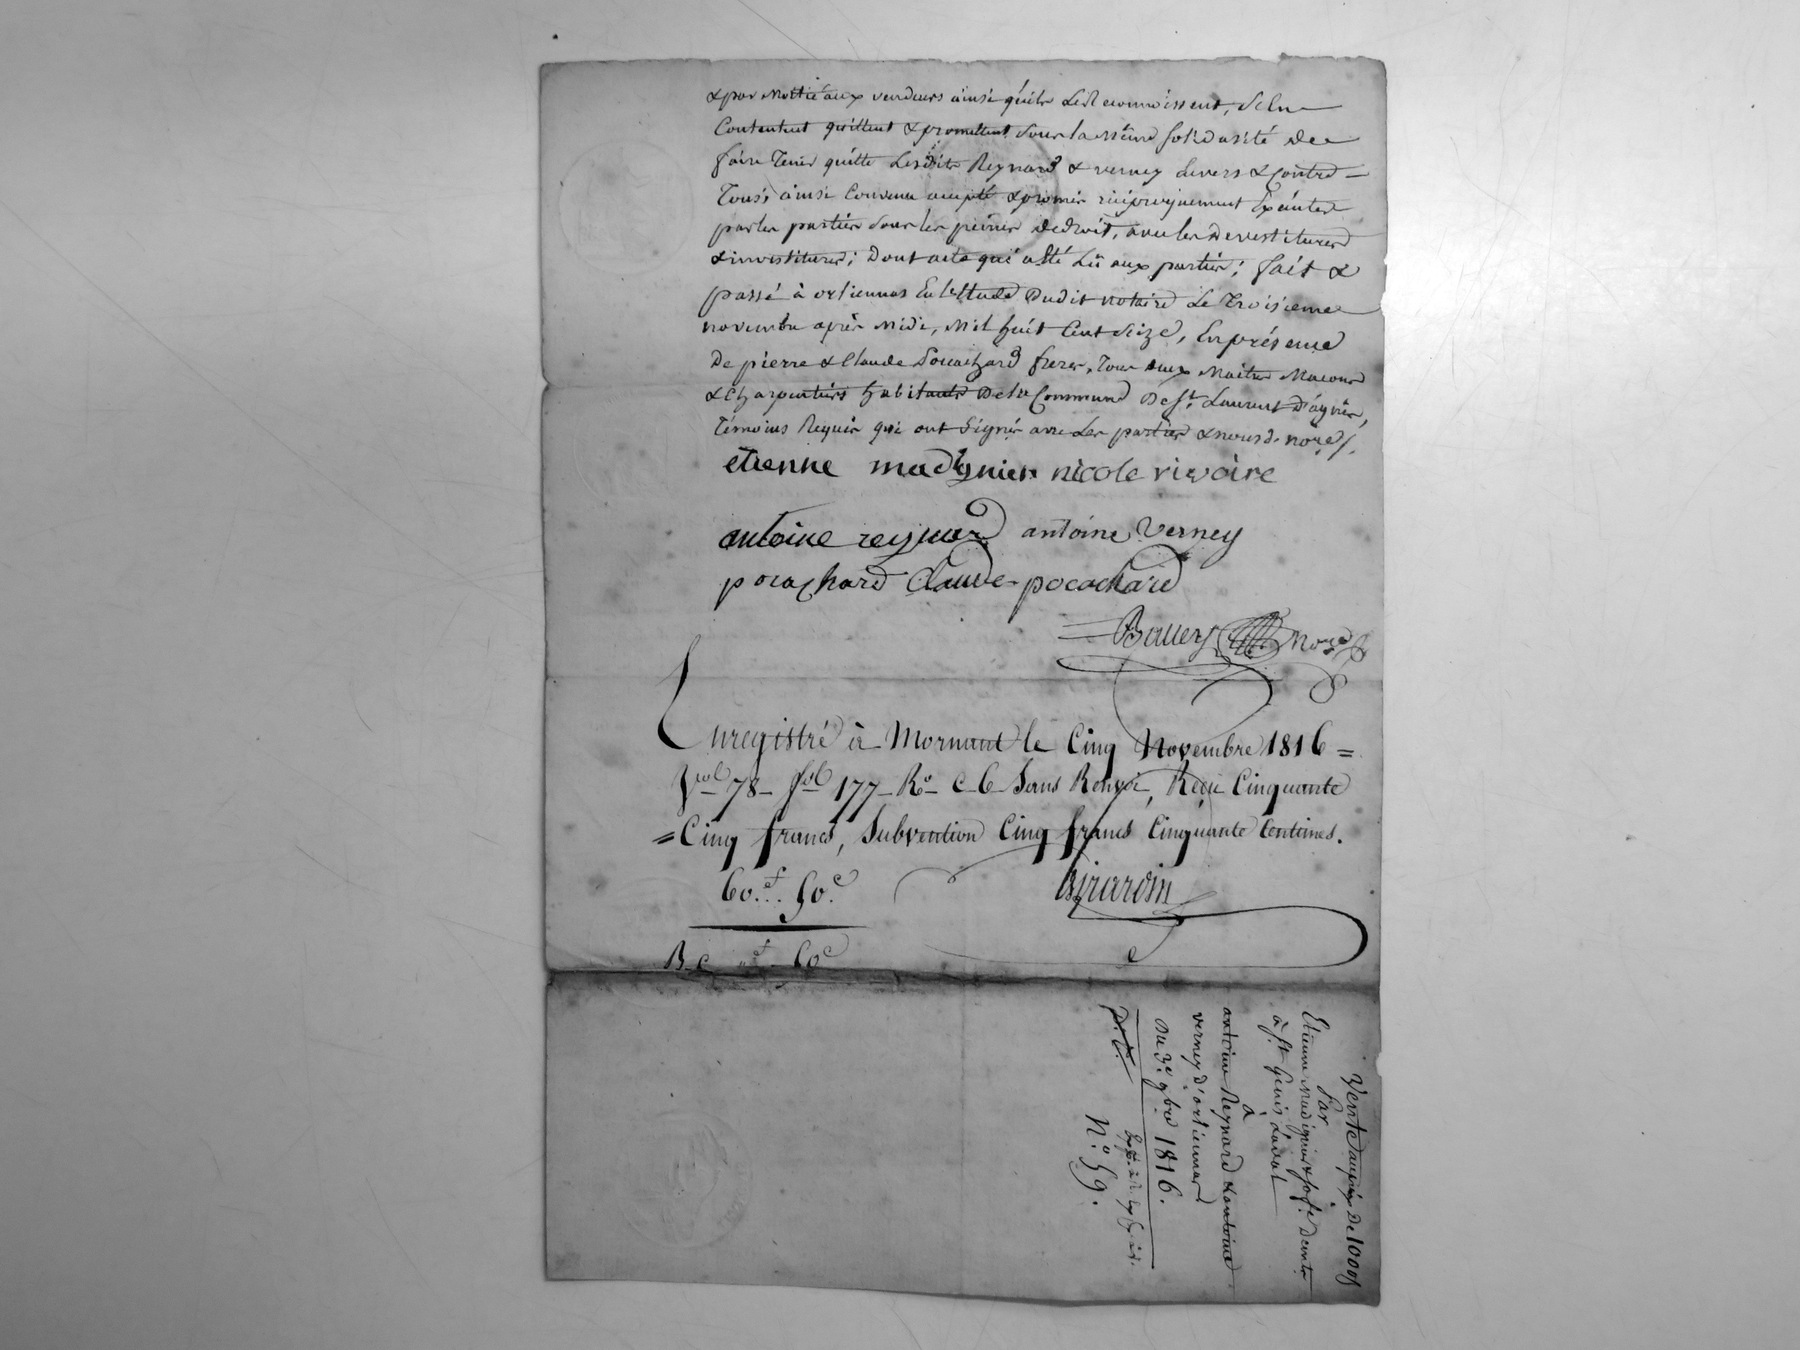 & par Moitié aux vendeurs ainsi qu'ils Le Reconnoissent, s'en
Contentent quittent & promettent sous la même solidarité de
faire Tenir quitte Lesdits Reynard & verney Envers & Contre
Tous; ainsi Convenu accepté & promis réciproquement Exécuter
par les parties sous les peines de droit, avec les Devestitures
& investitures; Dont acte qui a été Lû aux parties; fait &
passé à orliennas En l'Etude Dudit notaire Le Troisieme
novembre après Midi, Mil huit Cent seize, En présence
De pierre & Claude Pocachard freres, Tous deux Maîtres Macons
& Charpentiers habitants De la Commune De St. Laurent D'agnier,
Témoins Requis qui ont signés avec Les parties & nous d. nore.
etienne madignier nicole rivoire
antoine reynard antoine Verney
pocachard Claude pocachard
Nore
Enregistré à Mornant le Cinq Novembre 1816 =
Vol 78 fol 177 Ro C 6 Sans Renvoi, Reçu Cinquante
= Cinq francs, Subvention Cinq francs Cinquante Centimes.
60.f 50.c Girardin
50c
Vente au prix De 1000f
Par
Etienne Madignier & sa fe. Demts
à St. Genis Laval
à
antoine Reynard & antoine
verney d'orliennas
Du 3e. 9bre 1816.
N.o 59.